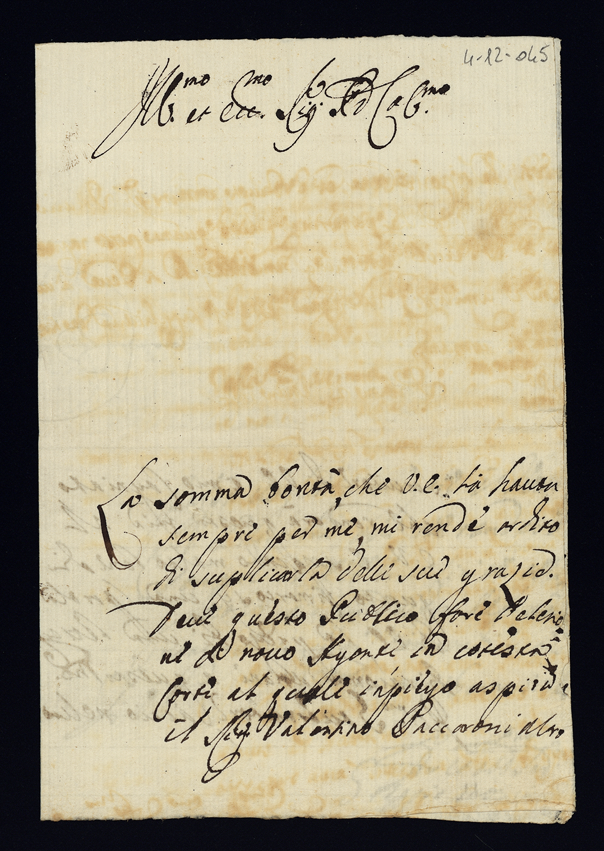 4-12-045
Ill.mo et Ecc.mo Sig.r P.d Col.mo
La somma bontà, che V.E. hà hauta
sempre per me, mi rende ardito
di suplicarla delle sue grazie.
Deue questo Publico fare l'elezio
ne di nouo Agente in cotesta
Corte al quale impiego aspira
il Sig. Valentino Paccaroni altro